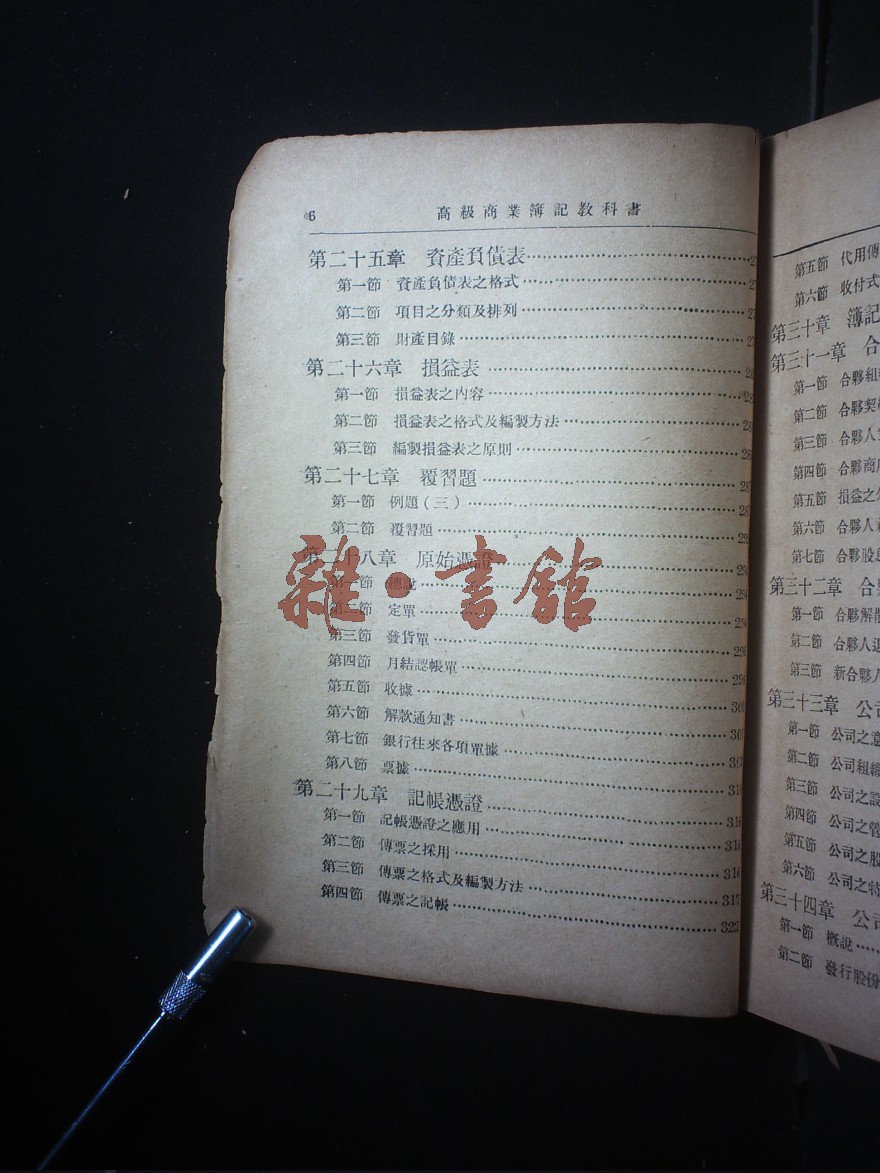 6 高級商業簿記教科書
第二十五章 資產負債表
第一節 資產負債表之格式
第二節 項目之分類及排列
第三節 財產目錄
第二十六章 損益表
第一節 損益表之內容
第二節 損益表之格式及編製方法
第三節 編製損益表之原則
第二十七章 覆習題
第一節 例題(三)
第二節 覆習題
第二十八章 原始憑證
第一節 總說
第二節 定單
第三節 發貨單
第四節 月結認帳單
第五節 收據
第六節 解款通知書
第七節 銀行往來各項單據
第八節 票據
第二十九章 記帳憑證
第一節 記帳憑證之應用
第二節 傳票之採用 316
第三節 傳票之格式及編製方法 317
第四節 傳票之記帳 322
雜·書館
第五節 代用傳
第六節 收付式
第三十章 簿記
第三十一章 合
第一節 合夥組
第二節 合夥契
第三節 合夥人
第四節 合夥商
第五節 損益之
第六節 合夥人
第七節 合夥股
第三十二章 合
第一節 合夥解
第二節 合夥人退
第三節 新合夥
第三十三章 公司
第一節 公司之
第二節 公司組
第三節 公司之設
第四節 公司之管
第五節 公司之股
第六節 公司之特
第三十四章 公司
第一節 概說
第二節 發行股份